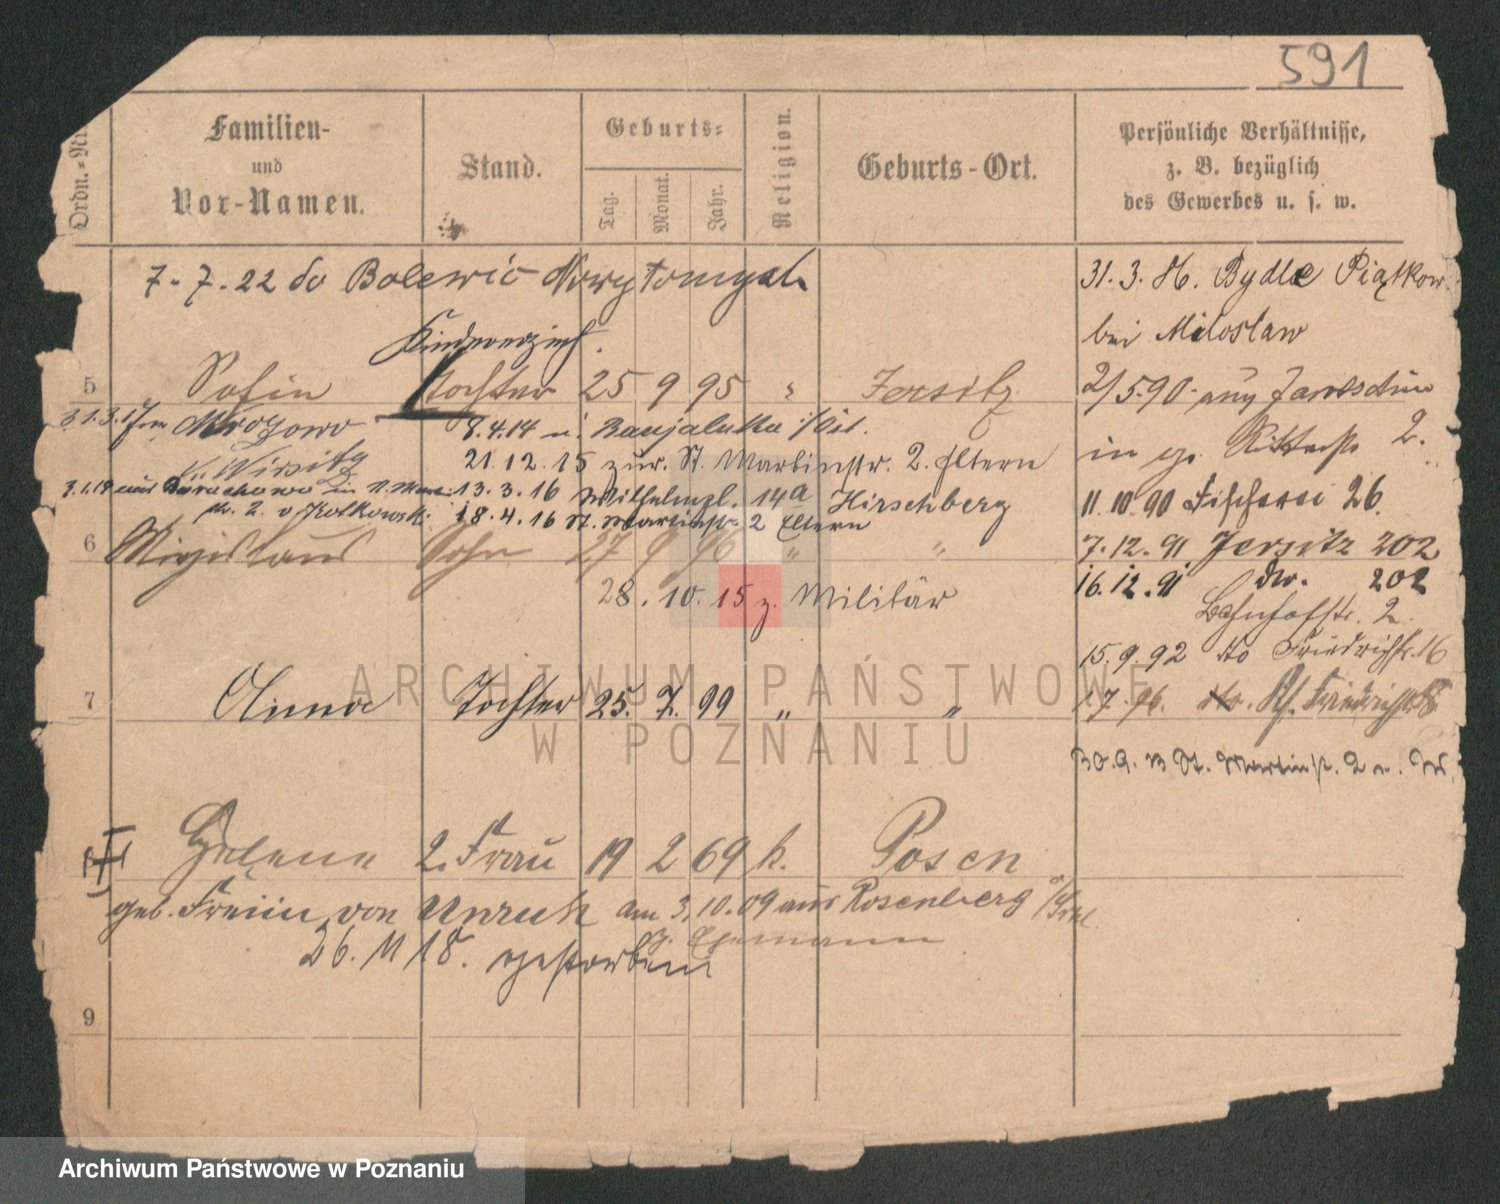 591
Ordn.-Nr.
Familien-
und
Vor-Namen.
Stand.
Geburts-
Tag.
Monat.
Jahr.
Religion.
Geburts-Ort.
Persönliche Verhältnisse,
z. B. bezüglich
des Gewerbes u. s. w.
7. 7. 22 do Bolewic Nowytomysl.
31. 3. H. Bydle Piątkow.
bei Miloslaw
Kindererzieh.
5 Sofia Tochter 25 9 95 " Jersitz
2/5.90. aus
31.3.17 Mrozowo
8.4.14 n. Banjaluka
in gr. Ritterstr. 2.
K. Wirsitz
21.12.15 zur. St. Martinstr. 2. Eltern
13.3.16 Wilhelmpl. 14a Hirschberg
11.10.90 Fischerei 26.
18.4.16 St. Martinstr. 2 Eltern
6 Sohn 27 9 96 " "
7.12.91 Jersitz 202
28.10.15 z. Militär
16.12.91 do. 202
Bahnhofstr. 2.
15.9.92 do Friedrichstr. 16
7 Anna Tochter 25. 7. 99 " "
1.7.96. Friedrichstr.
St. Martinstr. 2
Helene 2. Frau 19 2 69 k. Posen
geb. Freiin von Unruh am 3.10.09 aus Rosenberg
z. Ehemann
26. 11 18. gestorben
9
ARCHIWUM PAŃSTWOWE
W POZNANIU
Archiwum Państwowe w Poznaniu